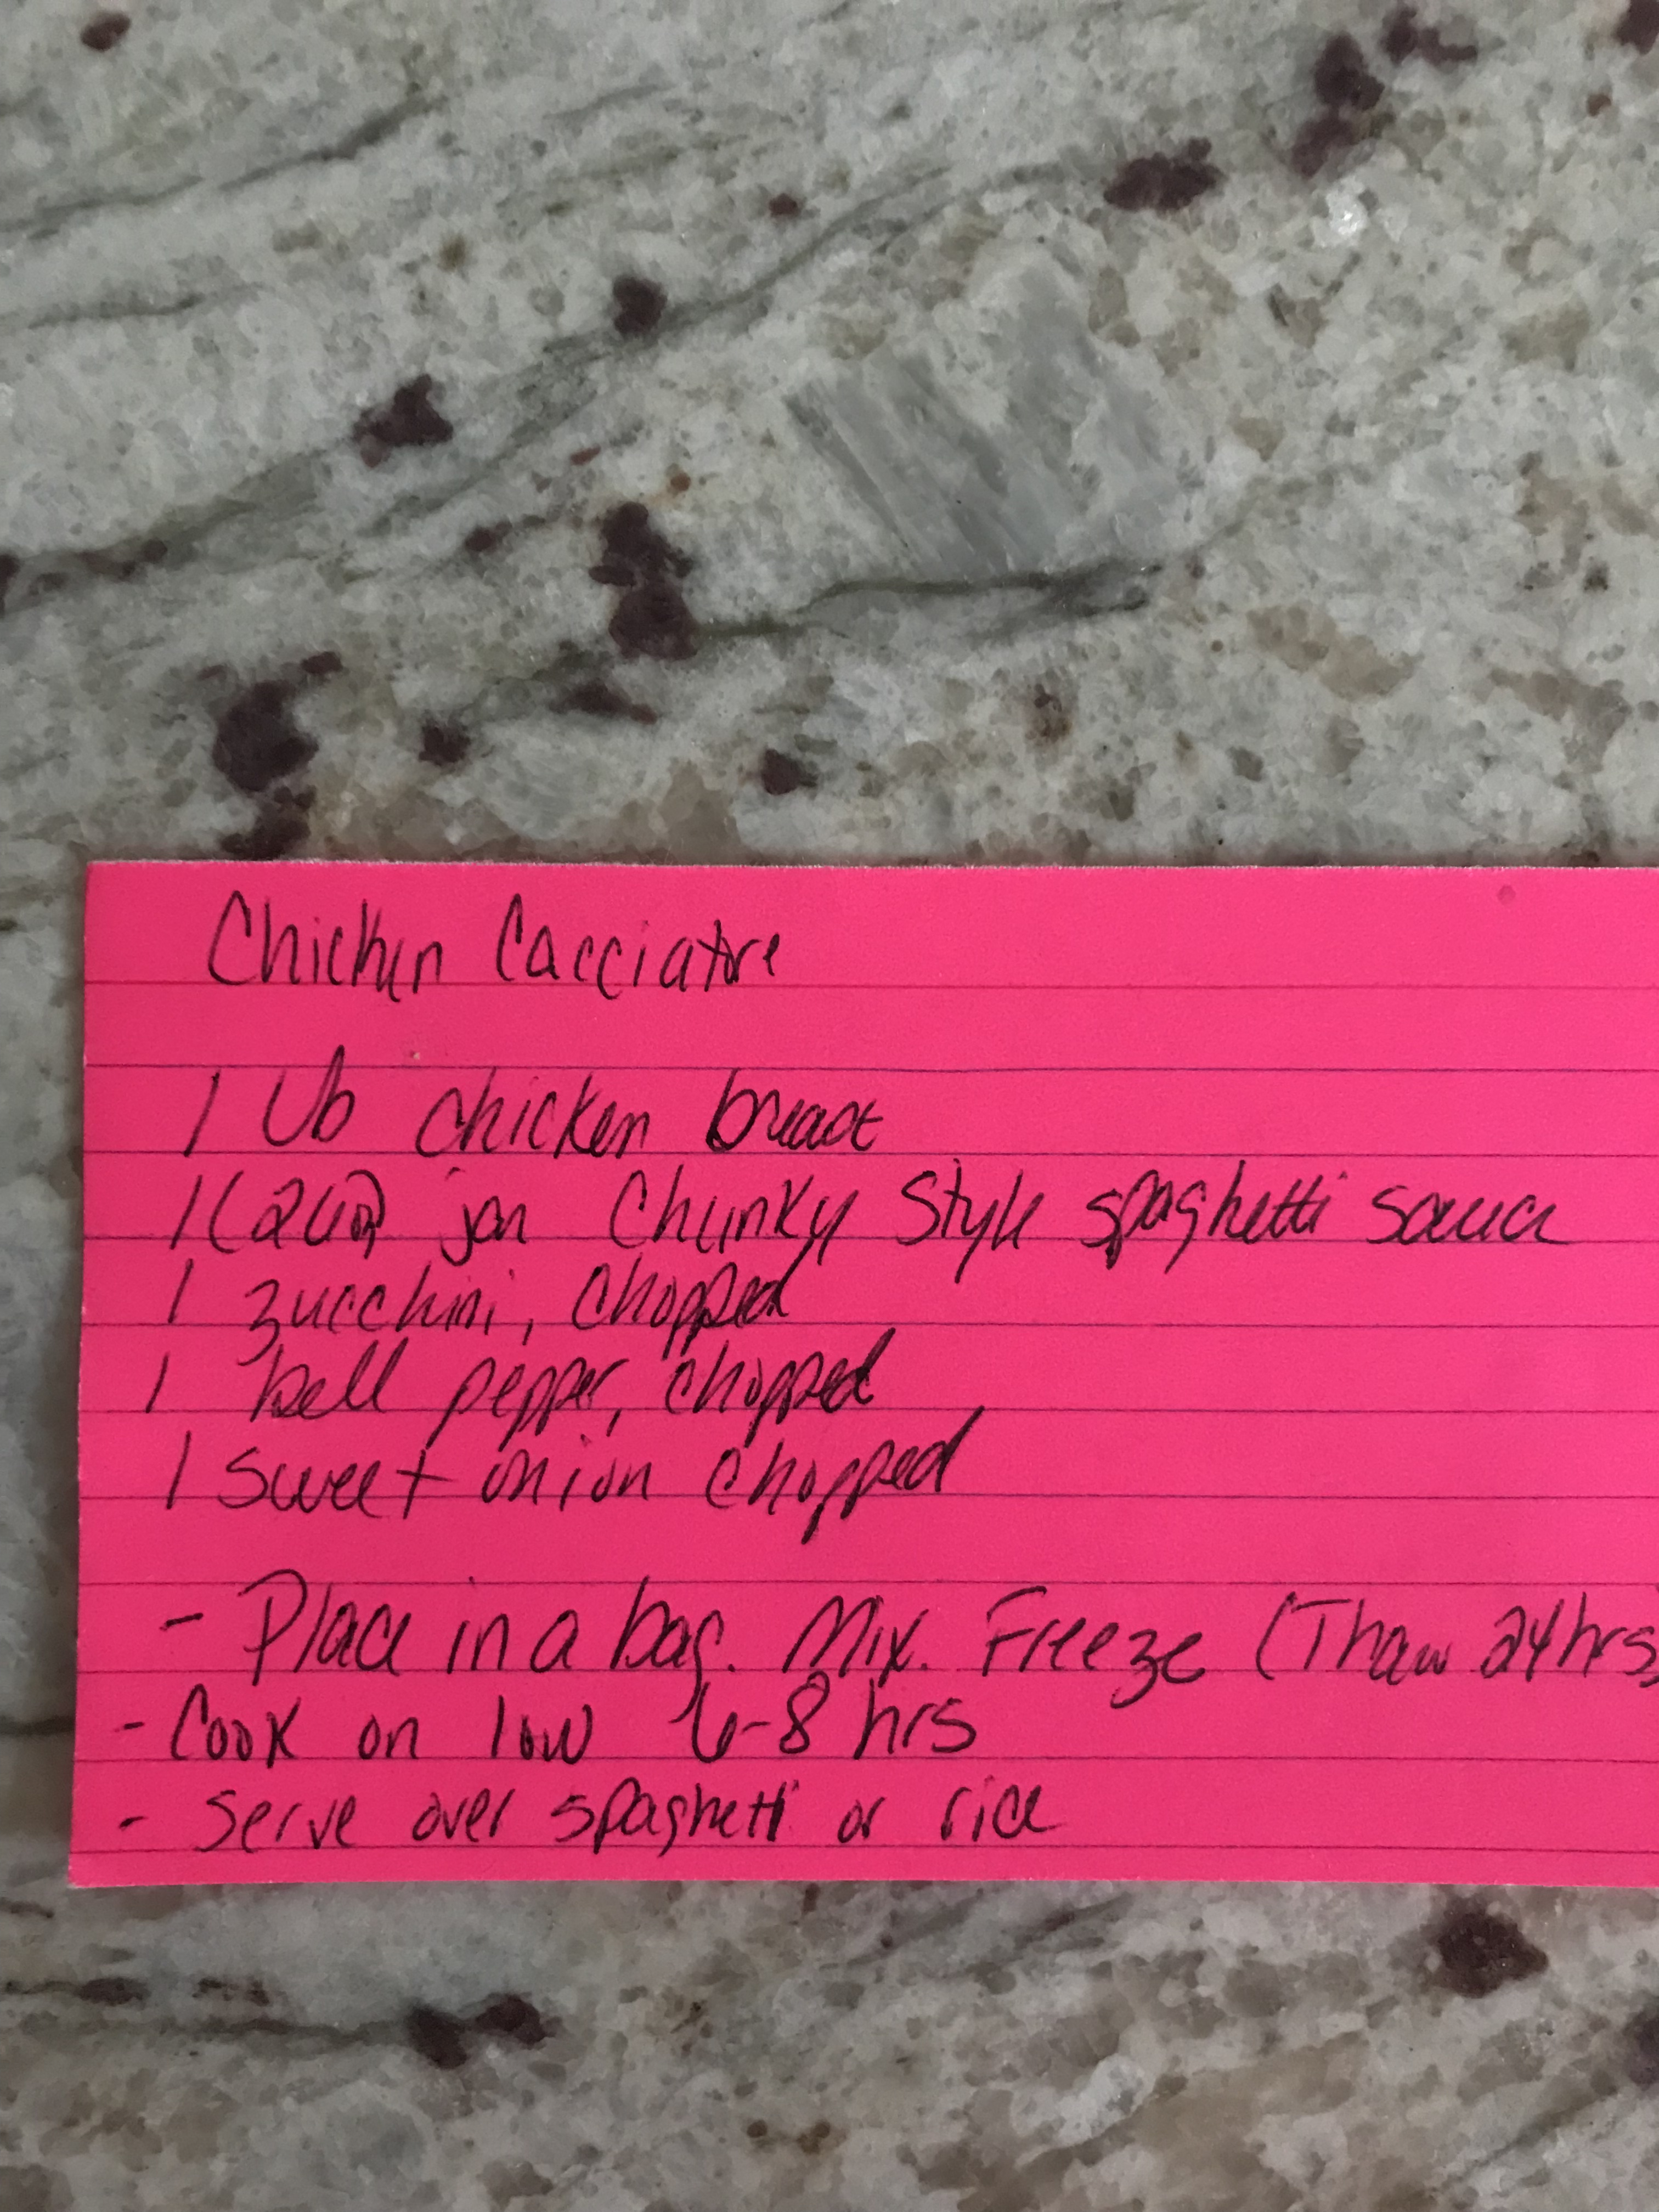 Chicken Cacciatore
1 lb chicken breast
1 (26oz) jar Chunky Style spaghetti sauce
1 zucchini, chopped
1 bell pepper, chopped
1 sweet onion chopped
- Place in a bag. Mix. Freeze (Thaw 24hrs)
- Cook on low 6-8 hrs
- Serve over spaghetti or rice